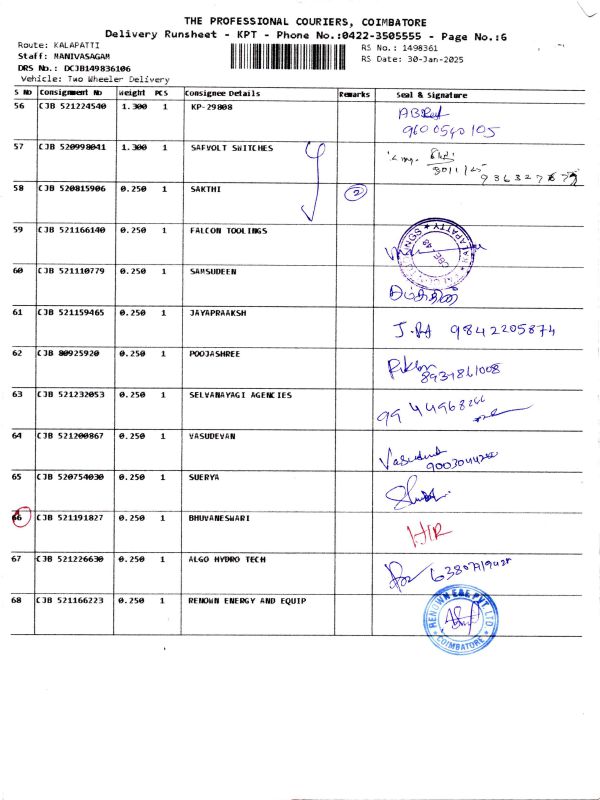 THE PROFESSIONAL COURIERS, COIMBATORE
Delivery Runsheet - KPT - Phone No.:0422-3505555 - Page No.:6
Route: KALAPATTI
Staff: MANIVASAGAM
DRS No.: DCJB149836106
Vehicle: Two Wheeler Delivery
RS No.: 1498361
RS Date: 30-Jan-2025
S NO Consignment No Weight PCS Consignee Details Remarks Seal & Signature
56 CJB 521224540 1.300 1 KP-29808
9600540105
57 CJB 520998041 1.300 1 SAFVOLT SWITCHES
58 CJB 520815906 0.250 1 SAKTHI 2
59 CJB 521166140 0.250 1 FALCON TOOLINGS
60 CJB 521110779 0.250 1 SAMSUDEEN
61 CJB 521159465 0.250 1 JAYAPRAAKSH
9842205874
62 CJB 80925920 0.250 1 POOJASHREE
63 CJB 521232053 0.250 1 SELVANAYAGI AGENCIES
64 CJB 521200867 0.250 1 VASUDEVAN
65 CJB 520754030 0.250 1 SUERYA
66 CJB 521191827 0.250 1 BHUVANESWARI
67 CJB 521226630 0.250 1 ALGO HYDRO TECH
68 CJB 521166223 0.250 1 RENOWN ENERGY AND EQUIP
RENOWN E&E PVT. LTD
COIMBATORE